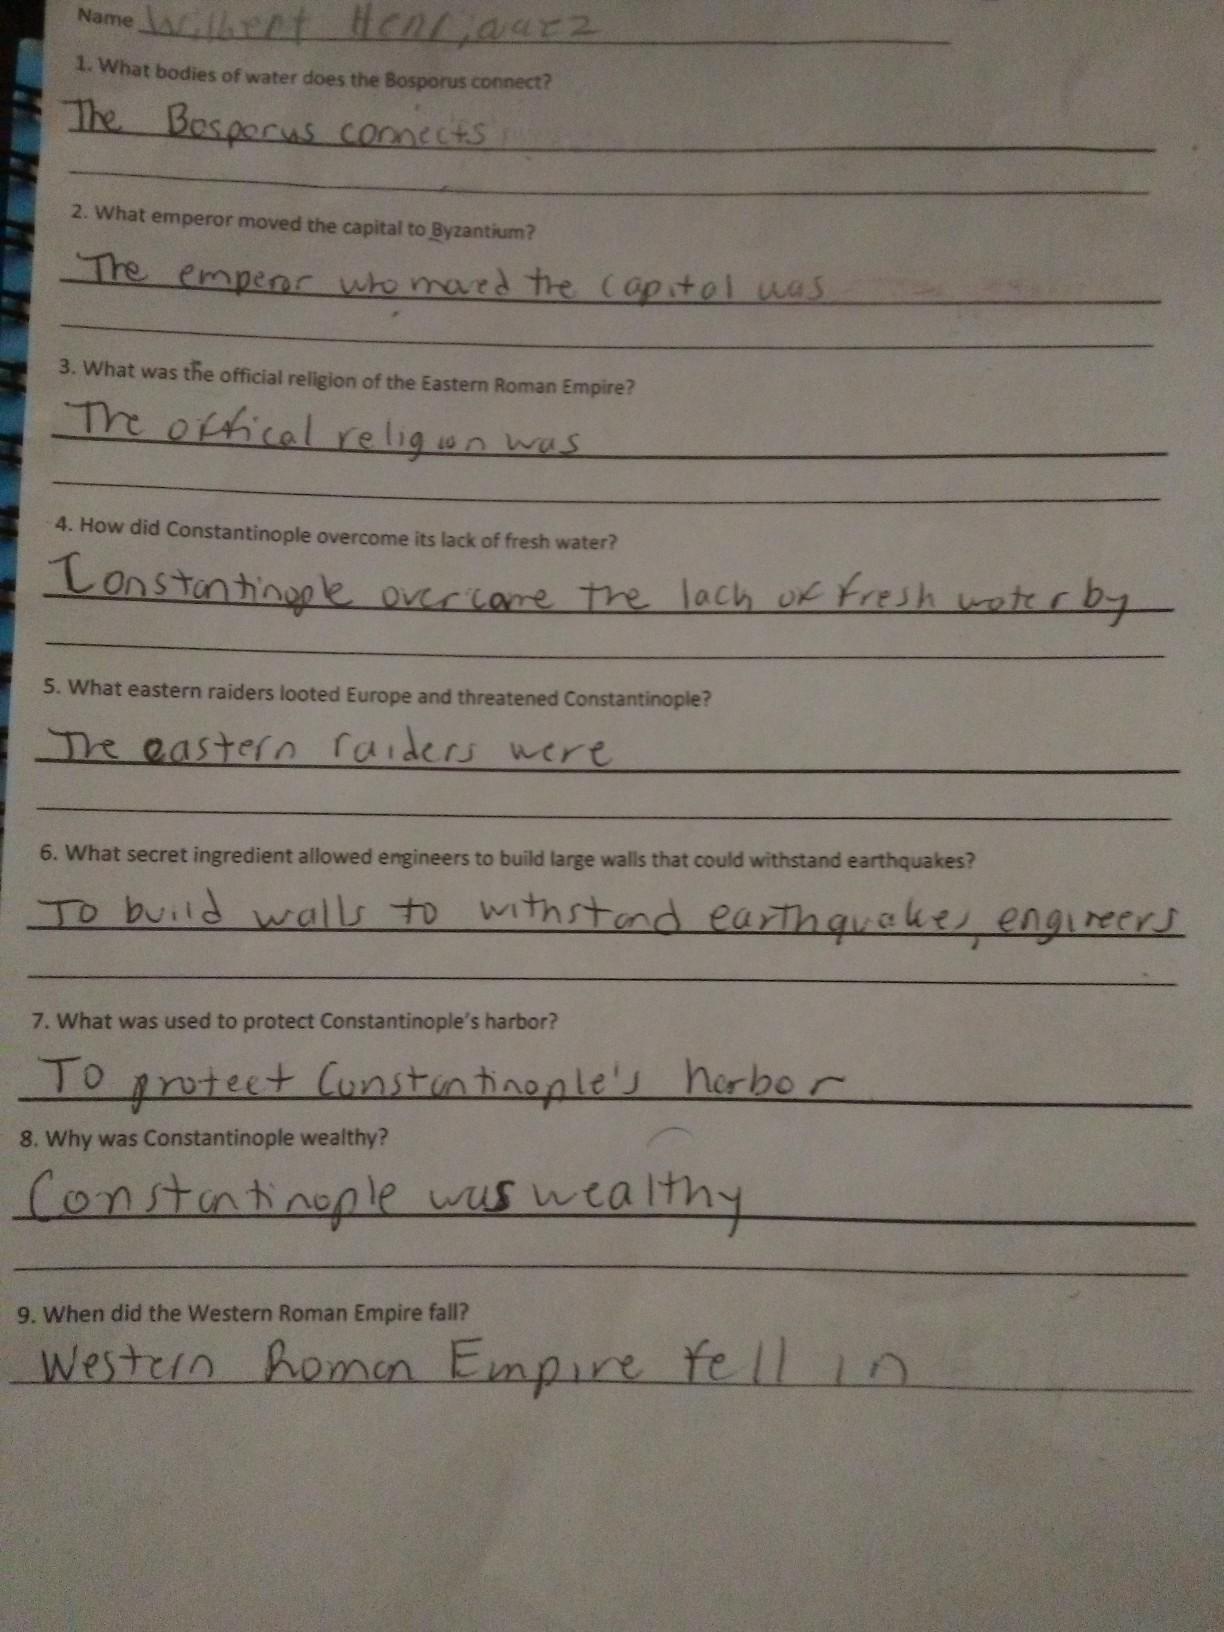 Name Wilbert Henriquez
1. What bodies of water does the Bosporus connect?
The Bosporus connects
2. What emperor moved the capital to Byzantium?
The emperor who moved the capital was
3. What was the official religion of the Eastern Roman Empire?
The offical religion was
4. How did Constantinople overcome its lack of fresh water?
Constantinople overcame the lach of fresh water by
5. What eastern raiders looted Europe and threatened Constantinople?
The eastern raiders were
6. What secret ingredient allowed engineers to build large walls that could withstand earthquakes?
To build walls to withstand earthquakes, engineers
7. What was used to protect Constantinople's harbor?
To protect Constantinople's harbor
8. Why was Constantinople wealthy?
Constantinople was wealthy
9. When did the Western Roman Empire fall?
Western Roman Empire fell in